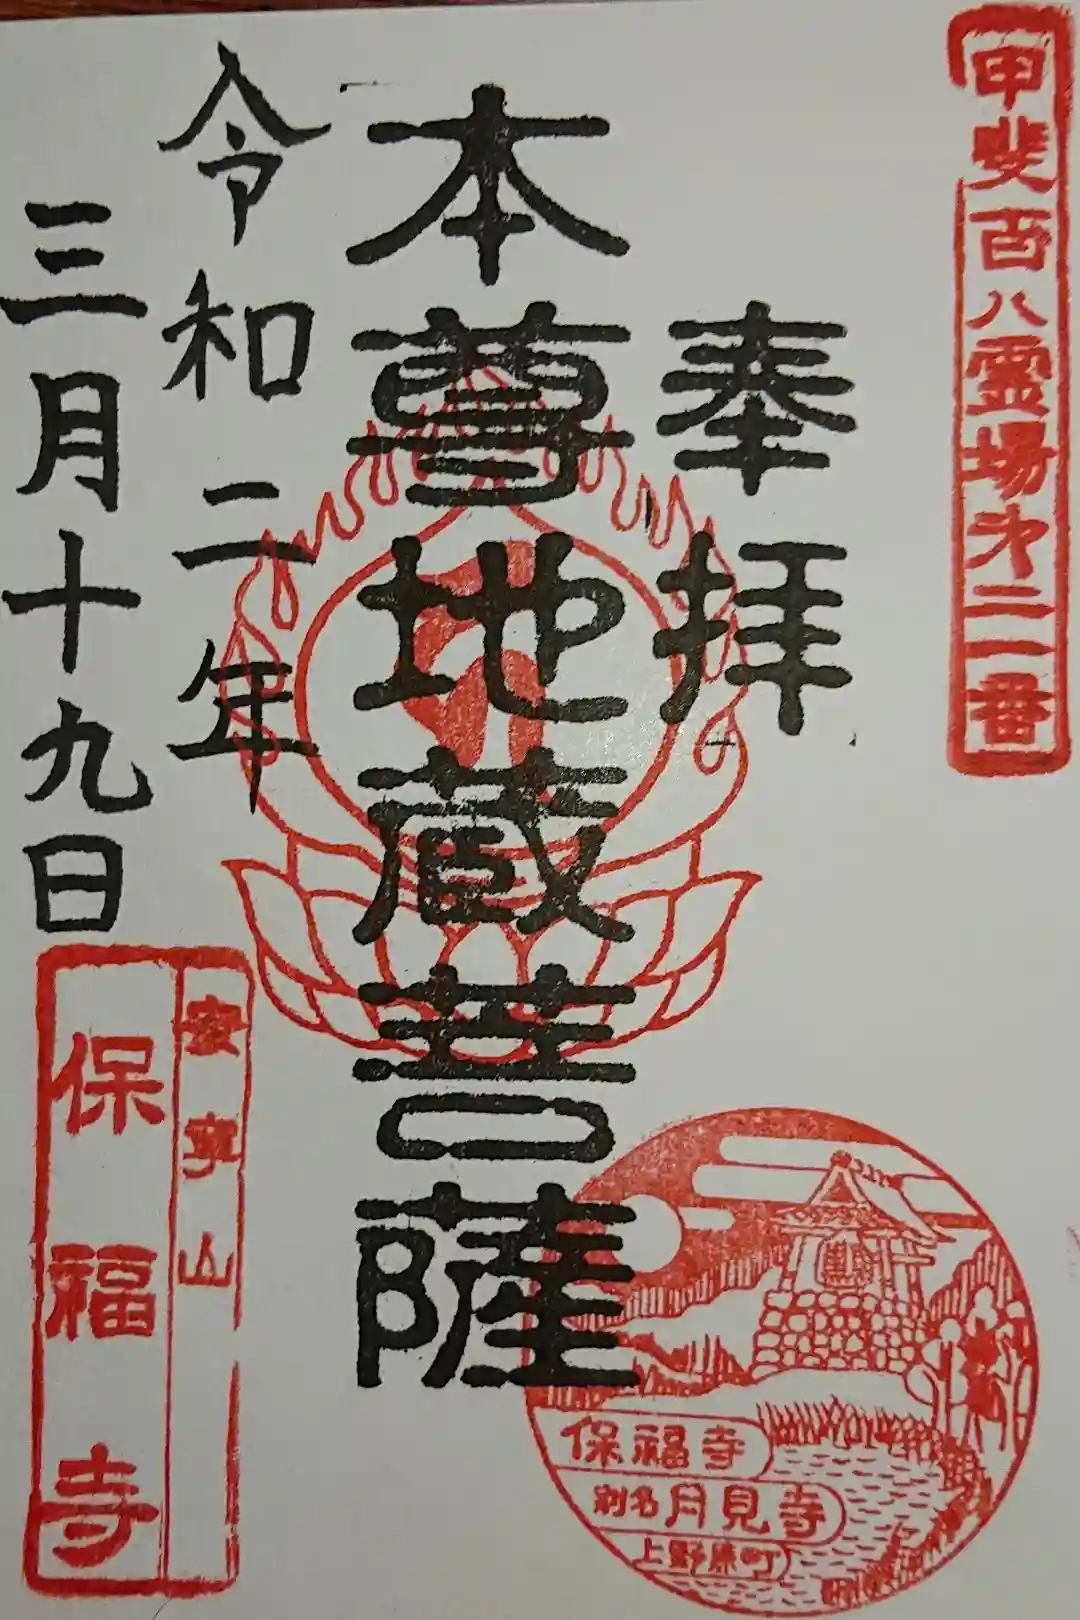 甲斐百八霊場第二一番
奉拝
本尊地蔵菩薩
令和二年
三月十九日
安寧山
保福寺
保福寺
別名月見寺
上野原町